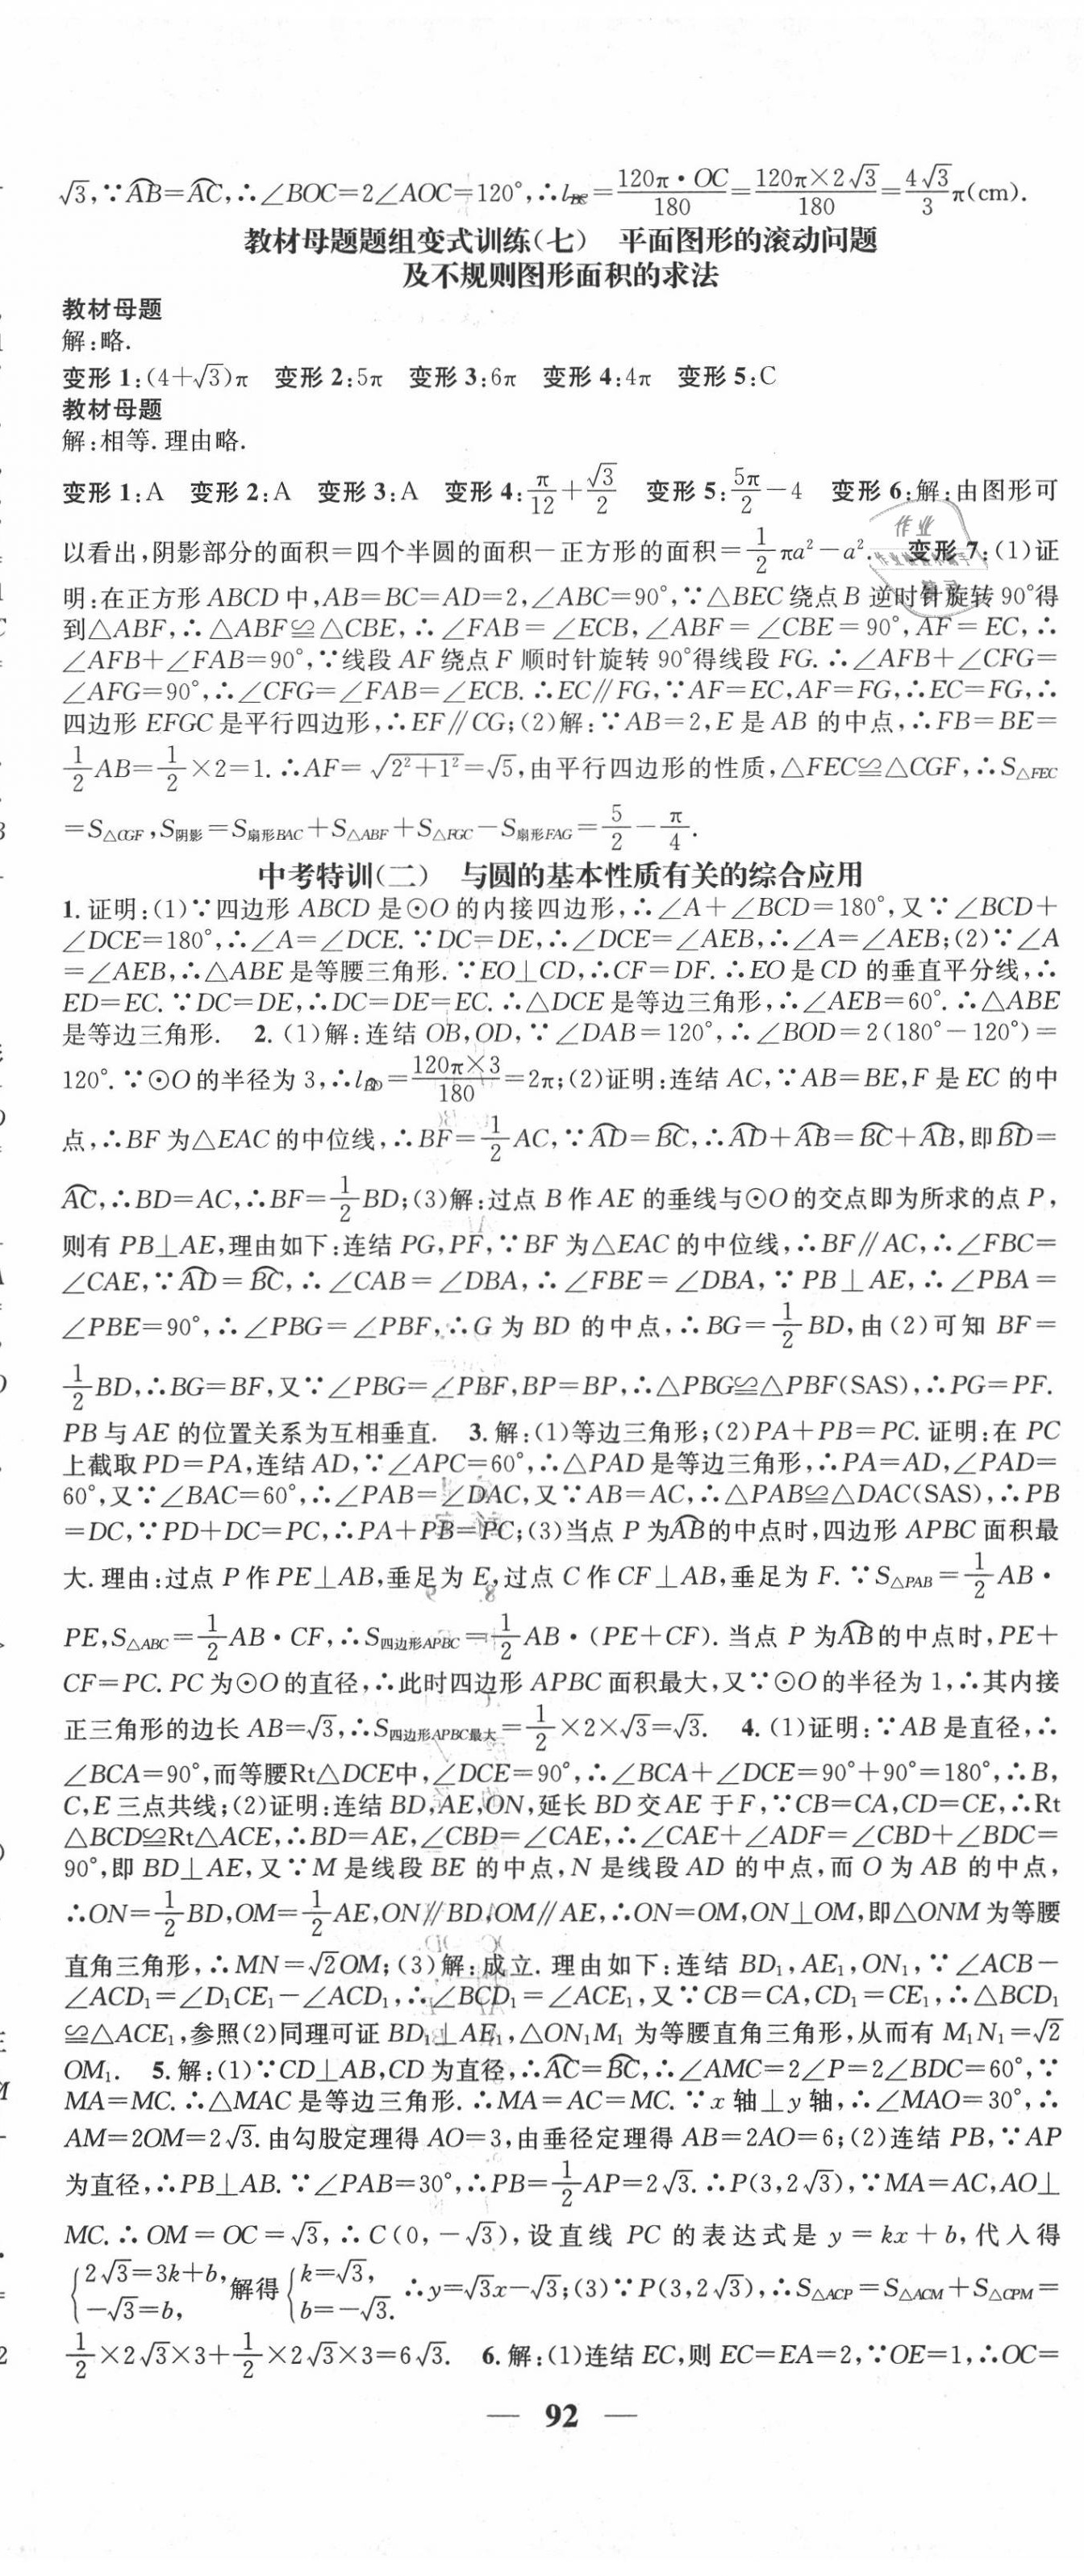 √3,∵⌒AB=⌒AC,∴∠BOC=2∠AOC=120°,∴l⌒BC=120π·OC/180=120π×2√3/180=4√3/3π(cm).
教材母题题组变式训练(七) 平面图形的滚动问题
及不规则图形面积的求法
教材母题
解:略.
变形1:(4+√3)π 变形2:5π 变形3:6π 变形4:4π 变形5:C
教材母题
解:相等.理由略.
变形1:A 变形2:A 变形3:A 变形4:π/12+√3/2 变形5:5π/2-4 变形6:解:由图形可
以看出,阴影部分的面积=四个半圆的面积-正方形的面积=1/2πa²-a². 变形7:(1)证
明:在正方形ABCD中,AB=BC=AD=2,∠ABC=90°,∵△BEC绕点B逆时针旋转90°得
到△ABF,∴△ABF≌△CBE,∴∠FAB=∠ECB,∠ABF=∠CBE=90°,AF=EC,∴
∠AFB+∠FAB=90°,∵线段AF绕点F顺时针旋转90°得线段FG.∴∠AFB+∠CFG=
∠AFG=90°,∴∠CFG=∠FAB=∠ECB.∴EC∥FG,∵AF=EC,AF=FG,∴EC=FG,∴
四边形EFGC是平行四边形,∴EF∥CG;(2)解:∵AB=2,E是AB的中点,∴FB=BE=
1/2AB=1/2×2=1.∴AF=√(2²+1²)=√5,由平行四边形的性质,△FEC≌△CGF,∴S△FEC
=S△CGF,S阴影=S扇形BAC+S△ABF+S△FGC-S扇形FAG=5/2-π/4.
中考特训(二) 与圆的基本性质有关的综合应用
1.证明:(1)∵四边形ABCD是⊙O的内接四边形,∴∠A+∠BCD=180°,又∵∠BCD+
∠DCE=180°,∴∠A=∠DCE.∵DC=DE,∴∠DCE=∠AEB,∴∠A=∠AEB;(2)∵∠A
=∠AEB,∴△ABE是等腰三角形.∵EO⊥CD,∴CF=DF.∴EO是CD的垂直平分线,∴
ED=EC.∵DC=DE,∴DC=DE=EC.∴△DCE是等边三角形,∴∠AEB=60°.∴△ABE
是等边三角形. 2.(1)解:连结OB,OD,∵∠DAB=120°,∴∠BOD=2(180°-120°)=
120°.∵⊙O的半径为3,∴l⌒BD=120π×3/180=2π;(2)证明:连结AC,∵AB=BE,F是EC的中
点,∴BF为△EAC的中位线,∴BF=1/2AC,∵⌒AD=⌒BC,∴⌒AD+⌒AB=⌒BC+⌒AB,即⌒BD=
⌒AC,∴BD=AC,∴BF=1/2BD;(3)解:过点B作AE的垂线与⊙O的交点即为所求的点P,
则有PB⊥AE,理由如下:连结PG,PF,∵BF为△EAC的中位线,∴BF∥AC,∴∠FBC=
∠CAE,∵⌒AD=⌒BC,∴∠CAB=∠DBA,∴∠FBE=∠DBA,∵PB⊥AE,∴∠PBA=
∠PBE=90°,∴∠PBG=∠PBF,∴G为BD的中点,∴BG=1/2BD,由(2)可知BF=
1/2BD,∴BG=BF,又∵∠PBG=∠PBF,BP=BP,∴△PBG≌△PBF(SAS),∴PG=PF.
PB与AE的位置关系为互相垂直. 3.解:(1)等边三角形;(2)PA+PB=PC.证明:在PC
上截取PD=PA,连结AD,∵∠APC=60°,∴△PAD是等边三角形,∴PA=AD,∠PAD=
60°,又∵∠BAC=60°,∴∠PAB=∠DAC,又∵AB=AC,∴△PAB≌△DAC(SAS),∴PB
=DC,∵PD+DC=PC,∴PA+PB=PC;(3)当点P为⌒AB的中点时,四边形APBC面积最
大.理由:过点P作PE⊥AB,垂足为E,过点C作CF⊥AB,垂足为F.∵S△PAB=1/2AB·
PE,S△ABC=1/2AB·CF,∴S四边形APBC=1/2AB·(PE+CF).当点P为⌒AB的中点时,PE+
CF=PC.PC为⊙O的直径,∴此时四边形APBC面积最大,又∵⊙O的半径为1,∴其内接
正三角形的边长AB=√3,∴S四边形APBC最大=1/2×2×√3=√3. 4.(1)证明:∵AB是直径,∴
∠BCA=90°,而等腰Rt△DCE中,∠DCE=90°,∴∠BCA+∠DCE=90°+90°=180°,∴B,
C,E三点共线;(2)证明:连结BD,AE,ON,延长BD交AE于F,∵CB=CA,CD=CE,∴Rt
△BCD≌Rt△ACE,∴BD=AE,∠CBD=∠CAE,∴∠CAE+∠ADF=∠CBD+∠BDC=
90°,即BD⊥AE,又∵M是线段BE的中点,N是线段AD的中点,而O为AB的中点,
∴ON=1/2BD,OM=1/2AE,ON∥BD,OM∥AE,∴ON=OM,ON⊥OM,即△ONM为等腰
直角三角形,∴MN=√2OM;(3)解:成立.理由如下:连结BD₁,AE₁,ON₁,∵∠ACB-
∠ACD₁=∠D₁CE₁-∠ACD₁,∴∠BCD₁=∠ACE₁,又∵CB=CA,CD₁=CE₁,∴△BCD₁
≌△ACE₁,参照(2)同理可证BD₁⊥AE₁,△ON₁M₁为等腰直角三角形,从而有M₁N₁=√2
OM₁. 5.解:(1)∵CD⊥AB,CD为直径,∴⌒AC=⌒BC,∴∠AMC=2∠P=2∠BDC=60°,∵
MA=MC.∴△MAC是等边三角形.∴MA=AC=MC.∵x轴⊥y轴,∴∠MAO=30°,∴
AM=2OM=2√3.由勾股定理得AO=3,由垂径定理得AB=2AO=6;(2)连结PB,∵AP
为直径,∴PB⊥AB.∵∠PAB=30°,∴PB=1/2AP=2√3.∴P(3,2√3),∵MA=AC,AO⊥
MC.∴OM=OC=√3,∴C(0,-√3),设直线PC的表达式是y=kx+b,代入得
{2√3=3k+b, -√3=b, 解得{k=√3, b=-√3. ∴y=√3x-√3;(3)∵P(3,2√3),∴S△ACP=S△ACM+S△CPM=
1/2×2√3×3+1/2×2√3×3=6√3. 6.解:(1)连结EC,则EC=EA=2,∵OE=1,∴OC=
— 92 —